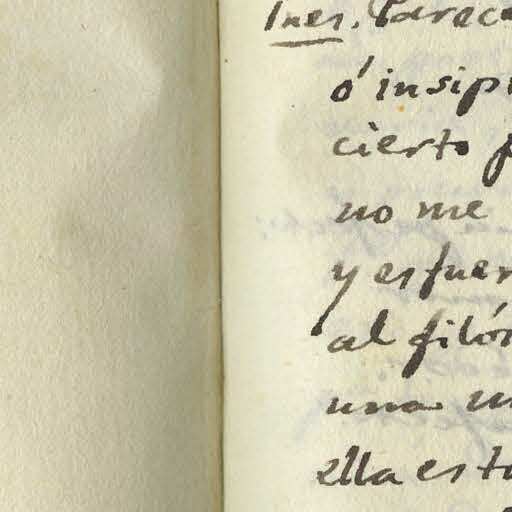 Ines. Parece
ó insipi
cierto p
no me
y esfuer
al filóf
una un
ella esta